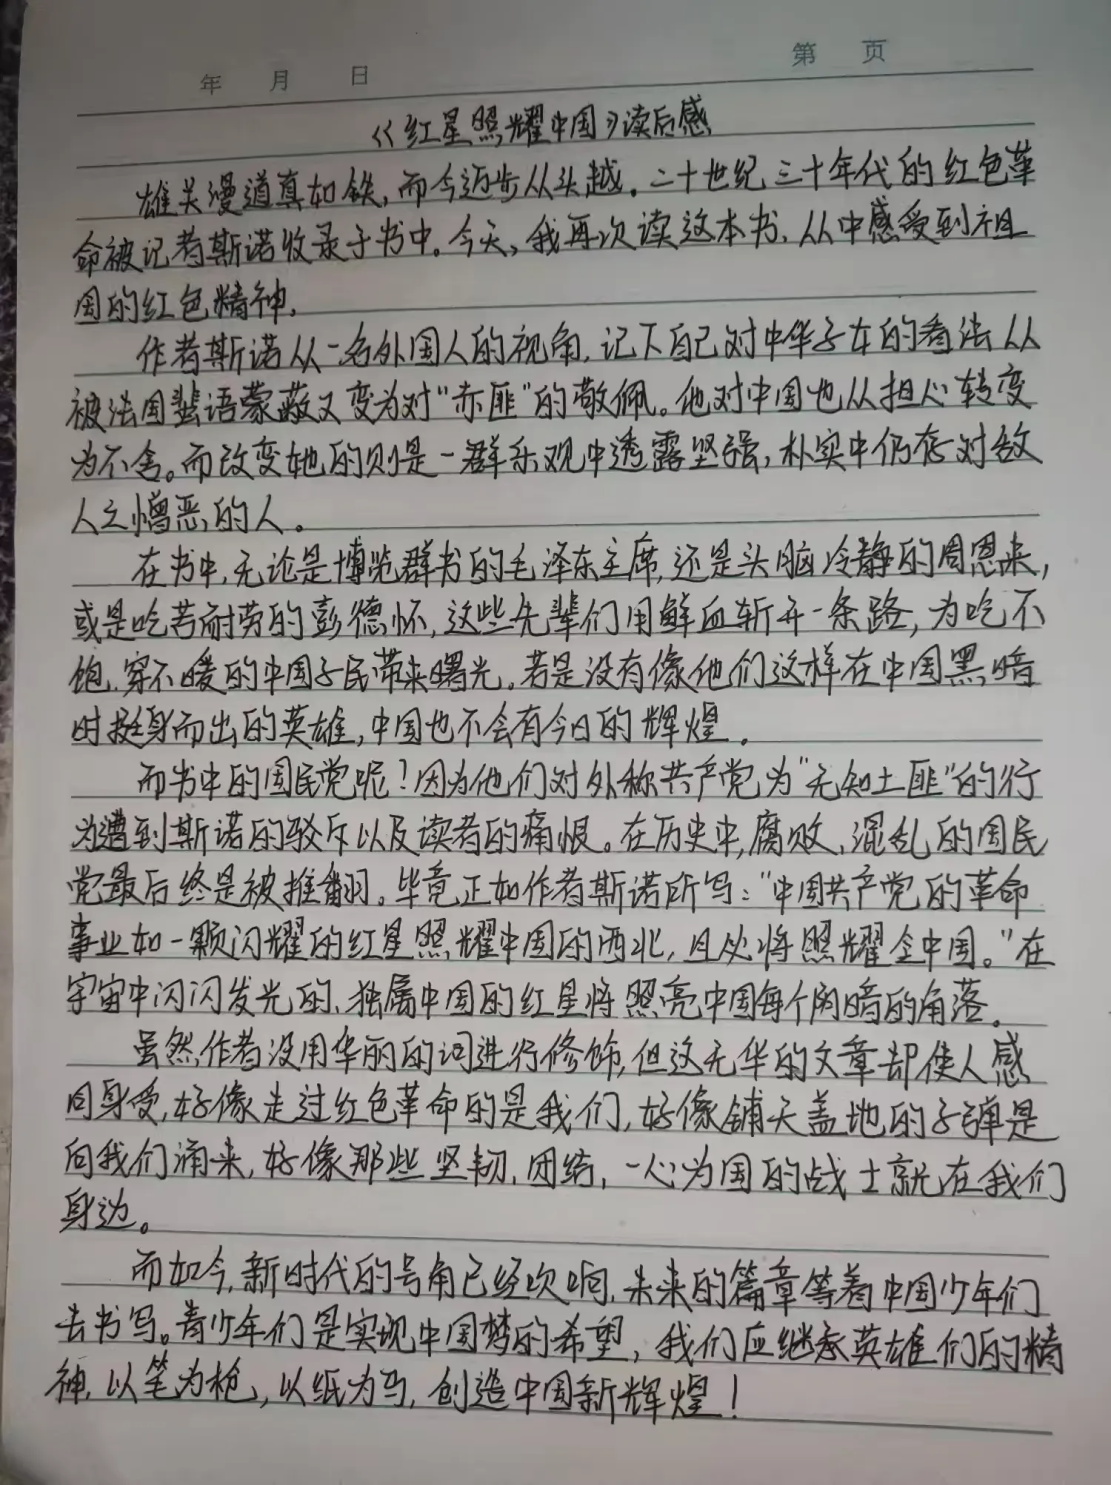 年 月 日 第 页
《红星照耀中国》读后感
雄关漫道真如铁，而今迈步从头越。二十世纪三十年代的红色革
命被记者斯诺收录于书中。今天，我再次读这本书，从中感受到祖
国的红色精神。
作者斯诺从一名外国人的视角，记下自己对中华子在的看法从
被法国蜚语蒙蔽又变为对“赤匪”的敬佩。他对中国也从担心转变
为不舍。而改变她的则是一群乐观中透露坚强，朴实中仍存对敌
人之憎恶的人。
在书中，无论是博览群书的毛泽东主席，还是头脑冷静的周恩来，
或是吃苦耐劳的彭德怀，这些先辈们用鲜血斩开一条路，为吃不
饱，穿不暖的中国子民带来曙光。若是没有像他们这样在中国黑暗
时挺身而出的英雄，中国也不会有今日的辉煌。
而书中的国民党呢？因为他们对外称共产党为“无知土匪”的行
为遭到斯诺的驳斥以及读者的痛恨。在历史中，腐败，混乱的国民
党最后终是被推翻。毕竟正如作者斯诺所写：“中国共产党的革命
事业如一颗闪耀的红星照耀中国的西北，且必将照耀全中国。”在
宇宙中闪闪发光的，独属中国的红星将照亮中国每个阴暗的角落。
虽然作者没用华丽的词进行修饰，但这无华的文章却使人感
同身受，好像走过红色革命的是我们，好像铺天盖地的子弹是
向我们涌来，好像那些坚韧，团结，一心为国的战士就在我们
身边。
而如今，新时代的号角已经吹响，未来的篇章等着中国少年们
去书写。青少年们是实现中国梦的希望，我们应继承英雄们的精
神，以笔为枪，以纸为马，创造中国新辉煌！